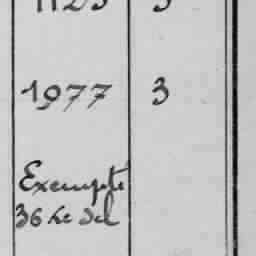 1123 3
1977 3
Exempté
36 he del